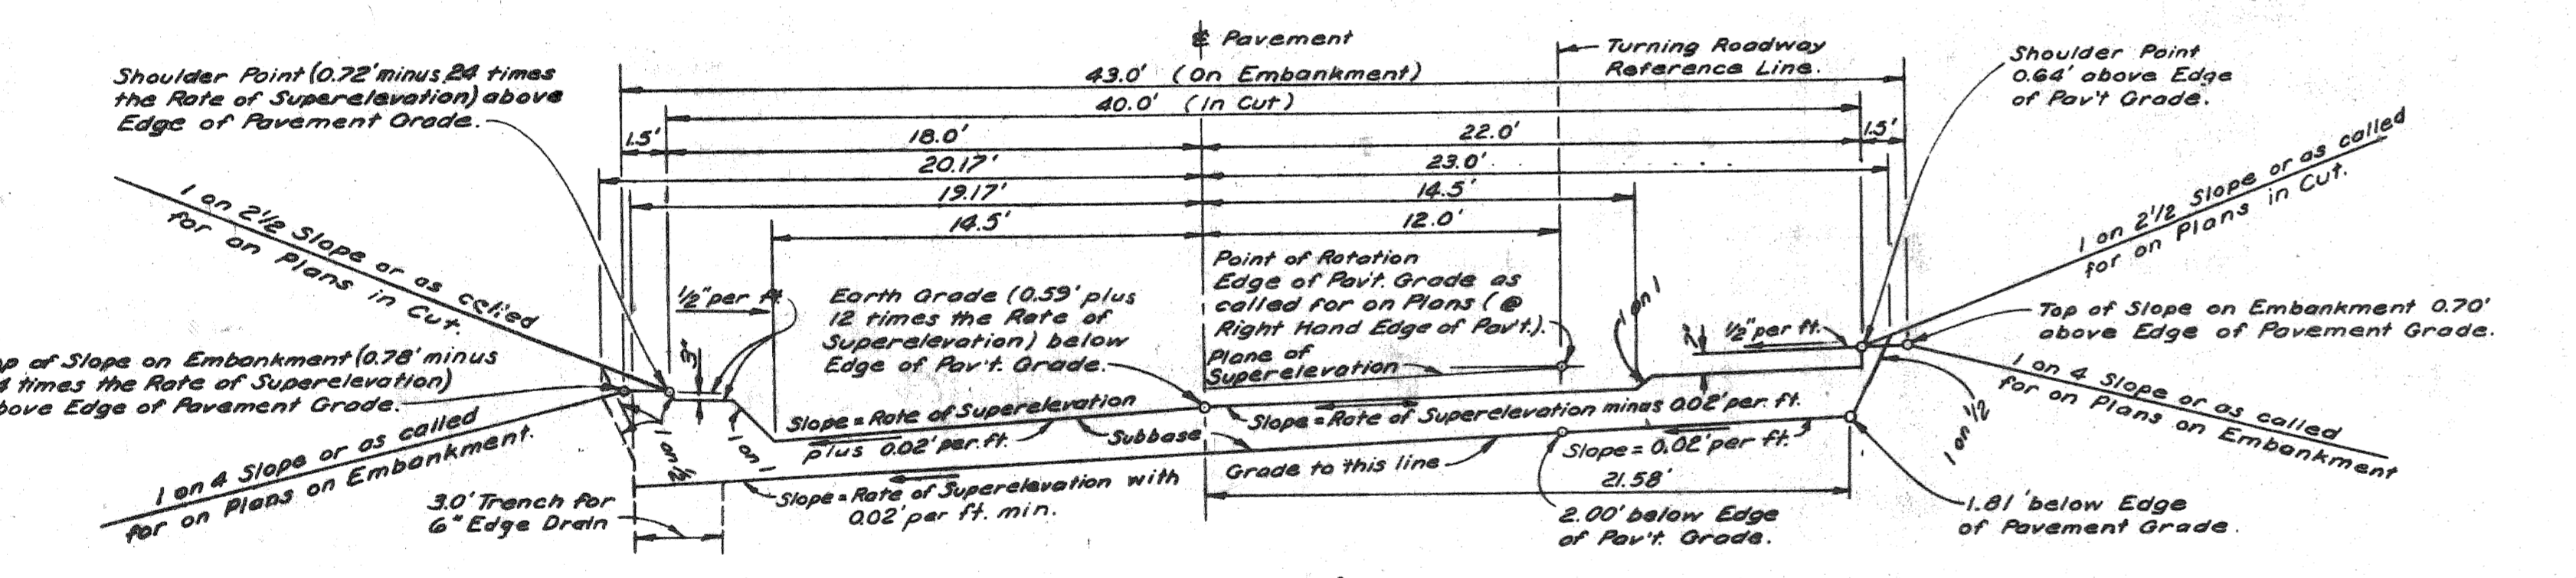 ℄ Pavement
Turning Roadway
Reference Line.
43.0' (On Embankment)
40.0' (In Cut)
Shoulder Point (0.72' minus 24 times
the Rate of Superelevation) above
Edge of Pavement Grade.
Shoulder Point
0.64' above Edge
of Pav't Grade.
1.5'
18.0'
22.0'
1.5'
20.17'
23.0'
19.17'
14.5'
14.5'
12.0'
1 on 2 1/2 Slope or as called
for on Plans in Cut.
1 on 2 1/2 Slope or as called
for on Plans in Cut.
1/2" per ft.
3"
Earth Grade (0.59' plus
12 times the Rate of
Superelevation) below
Edge of Pav't. Grade.
Point of Rotation
Edge of Pav't. Grade as
called for on Plans (@
Right Hand Edge of Pav't.).
Plane of
Superelevation
1 on 1
1/2" per ft.
Top of Slope on Embankment 0.70'
above Edge of Pavement Grade.
of Slope on Embankment (0.78' minus
times the Rate of Superelevation)
Edge of Pavement Grade.
1 on 4 Slope or as called
for on Plans on Embankment.
1 on 4 Slope or as called
for on Plans on Embankment
1 on 1/2
1 on 1
1 on 1/2
Slope = Rate of Superelevation
plus 0.02' per ft.
Subbase
Slope = Rate of Superelevation minus 0.02' per ft.
Slope = Rate of Superelevation with
0.02' per ft. min.
Grade to this line
Slope = 0.02' per ft.
21.58'
3.0' Trench for
6" Edge Drain
2.00' below Edge
of Pav't. Grade.
1.81' below Edge
of Pavement Grade.